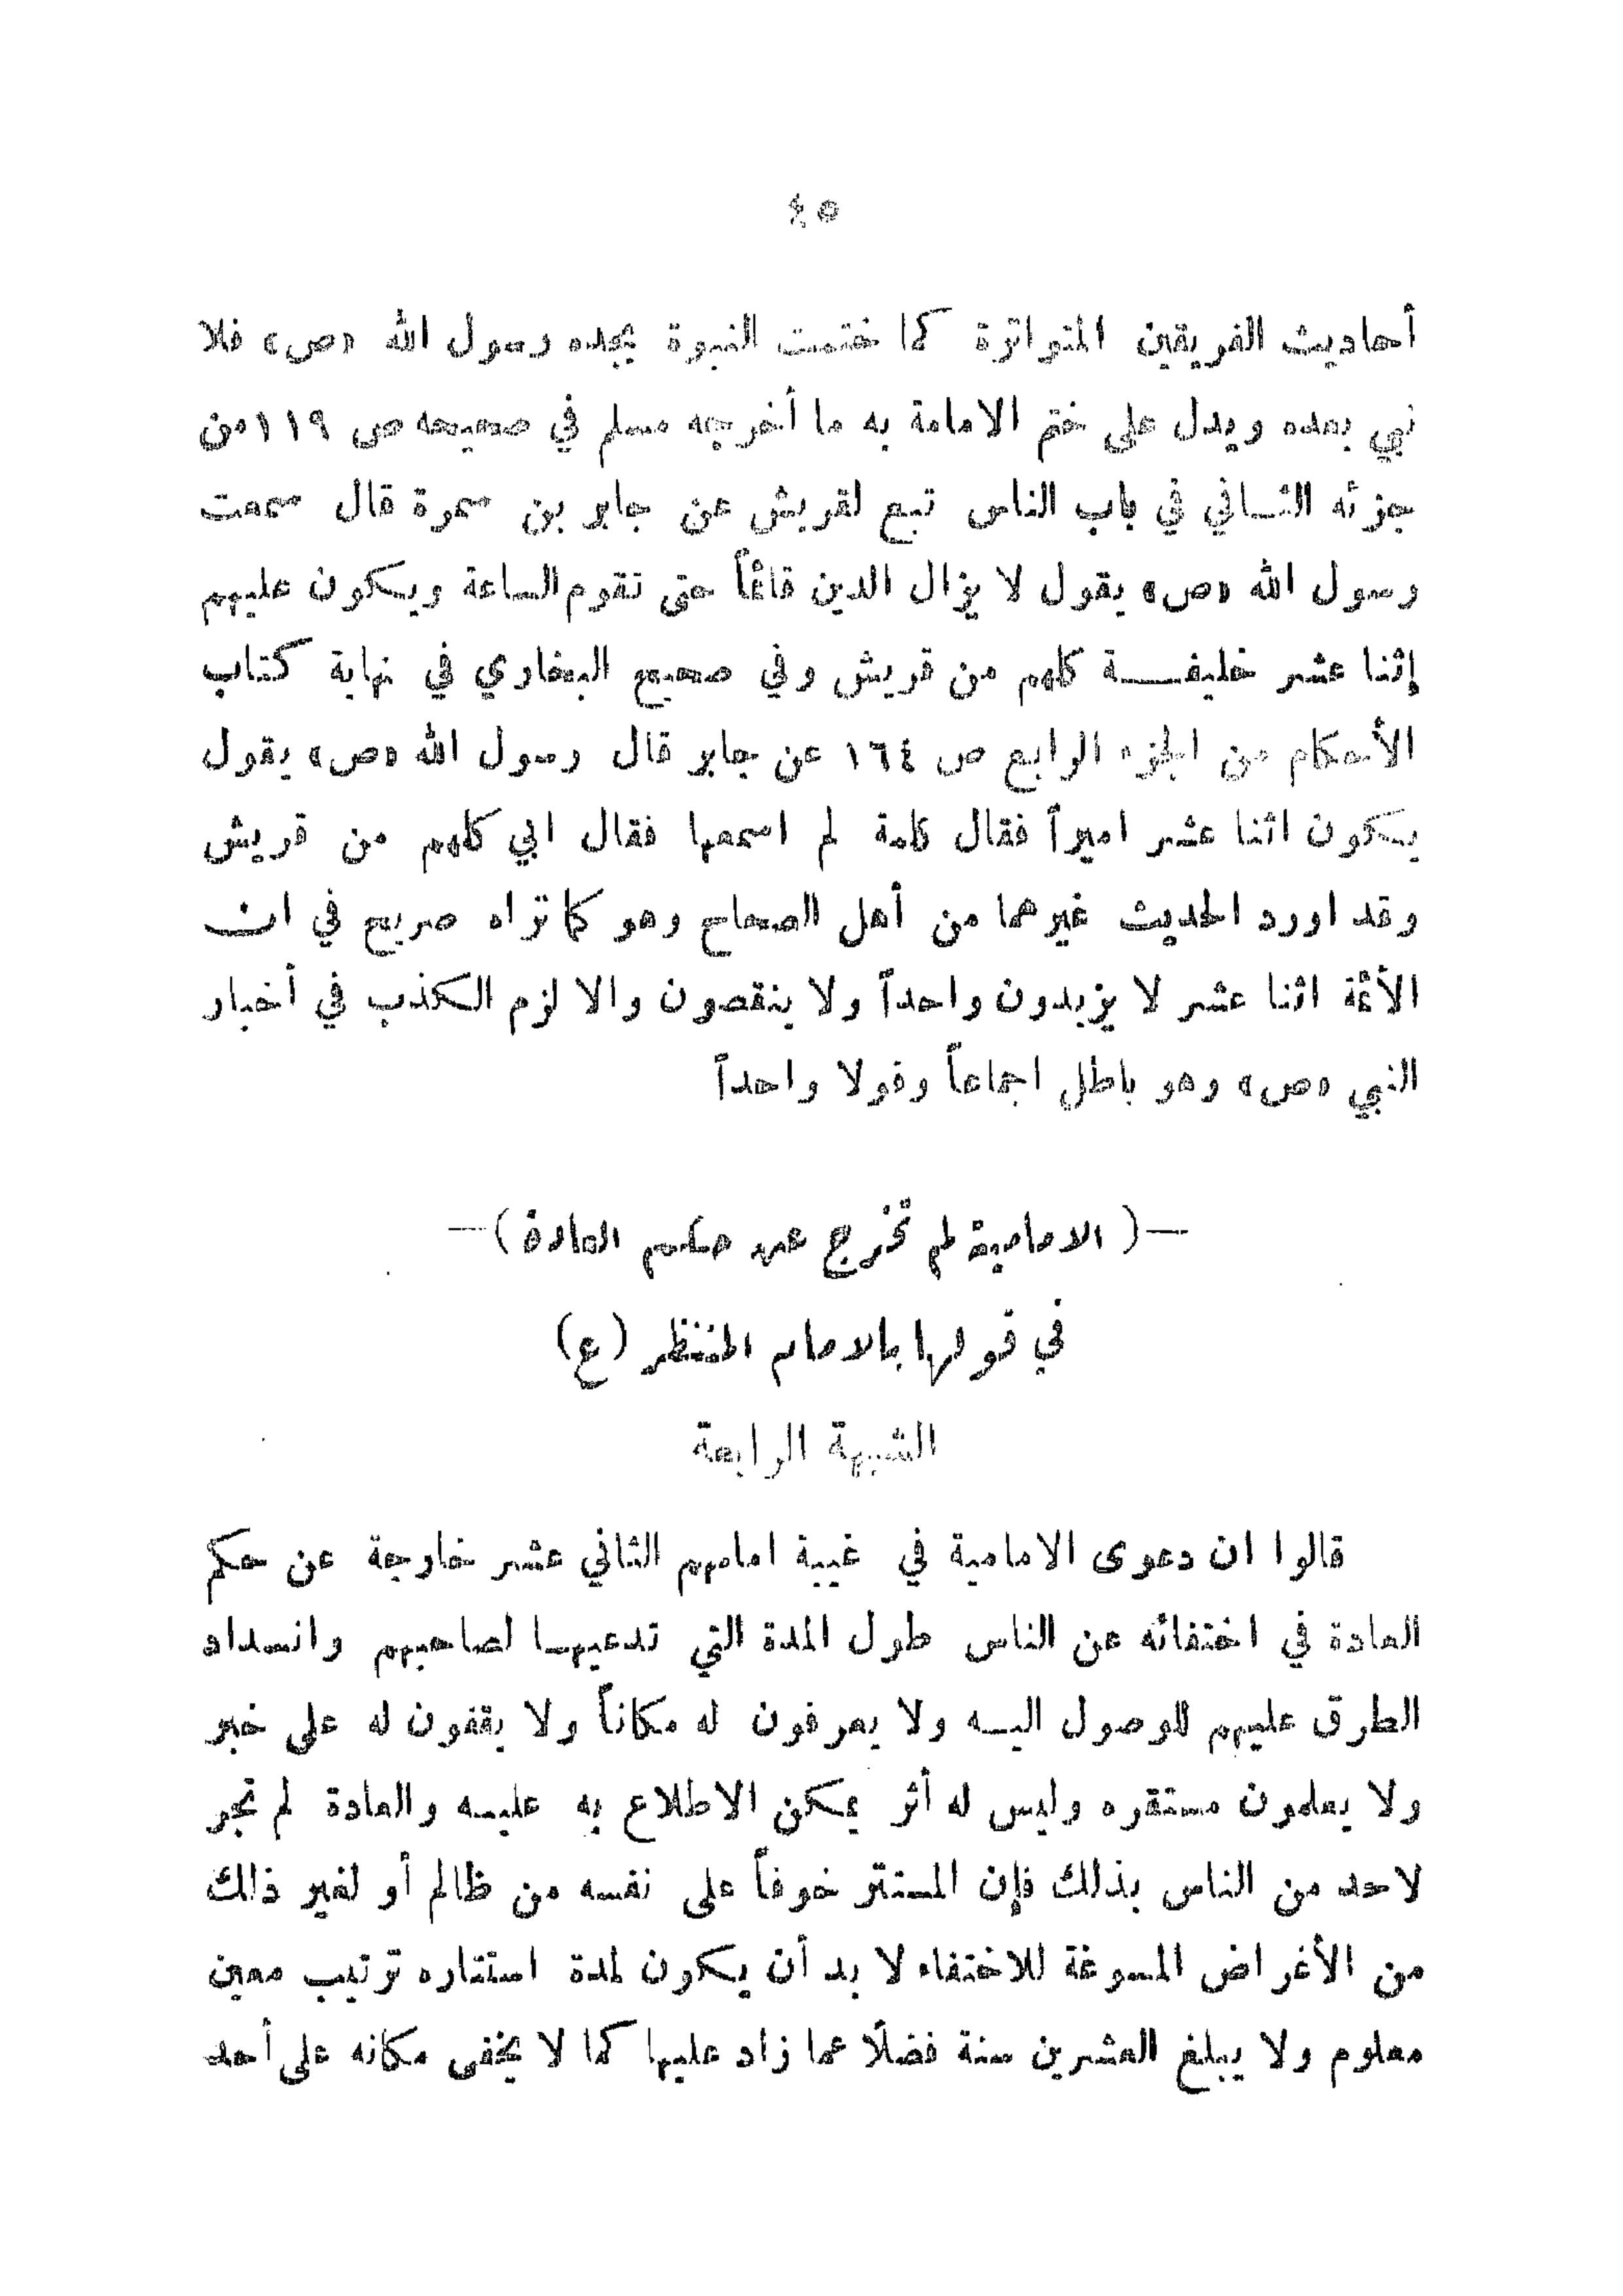 ٤٥
أحاديث الفريقين المتواترة كما ختمت النبوة بجده رسول الله «ص» فلا
نبي بعده ويدل على ختم الامامة به ما أخرجه مسلم في صحيحه ص ١١٩ من
جزئه الثـاني في باب الناس تبع لقريش عن جابر بن سمرة قال سمعت
رسول الله «ص» يقول لا يزال الدين قائماً حتى تقوم الساعة ويكون عليهم
إثنا عشر خليفـــة كلهم من قريش وفي صحيح البخاري في نهاية كتاب
الأحكام من الجزء الرابع ص ١٦٤ عن جابر قال رسول الله «ص» يقول
يكون اثنا عشر اميراً فقال كلمة لم اسمعها فقال ابي كلهم من قريش
وقد اورد الحديث غيرهما من أهل الصحاح وهو كما تراه صريح في ان
الأئمة اثنا عشر لا يزيدون واحداً ولا ينقصون والا لزم الكذب في أخبار
النبي «ص» وهو باطل اجماعاً وقولا واحداً
—( الامامية لم تخرج عن حكم العادة )—
في قولها بالامام المنتظر (ع)
الشبهة الرابعة
قالوا ان دعوى الامامية في غيبة امامهم الثاني عشر خارجة عن حكم
العادة في اختفائه عن الناس طول المدة التي تدعيهـا لصاحبهم وانسداد
الطرق عليهم للوصول اليـه ولا يعرفون له مكاناً ولا يقفون له على خبر
ولا يعلمون مستقره وليس له أثر يمكن الاطلاع به عليـه والعادة لم تجر
لاحد من الناس بذلك فإن المستتر خوفاً على نفسه من ظالم أو لغير ذلك
من الأغراض المسوغة للاختفاء لا بد أن يكون لمدة استتاره ترتيب معين
معلوم ولا يبلغ العشرين سنة فضلًا عما زاد عليها كما لا يخفى مكانه على أحد